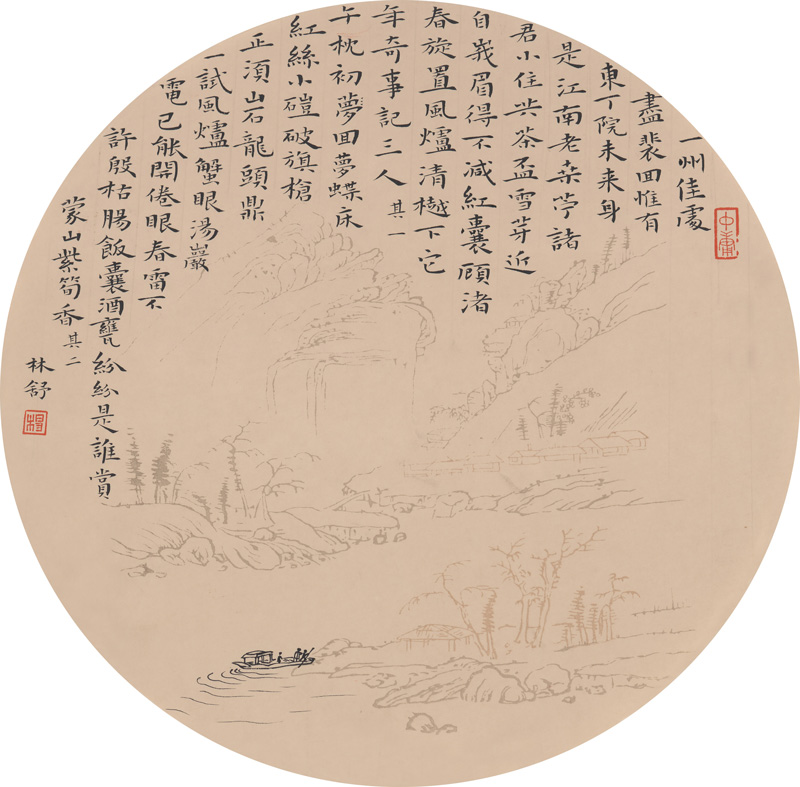 一州佳處
盡裴回惟有
東丁院未来身
是江南老桒苧諸
君小住共茶盃雪芽近
自峩眉得不減紅囊顧渚
春旋置風爐清樾下它
年奇事記三人 其一
午枕初夢回夢蝶床
紅絲小磑破旗槍
正須山石龍頭鼎
一試風爐蟹眼湯巖
電已能開倦眼春雷不
許殷枯腸飯囊酒甕紛紛是誰賞
蒙山紫筍香 其二
林舒
中庸